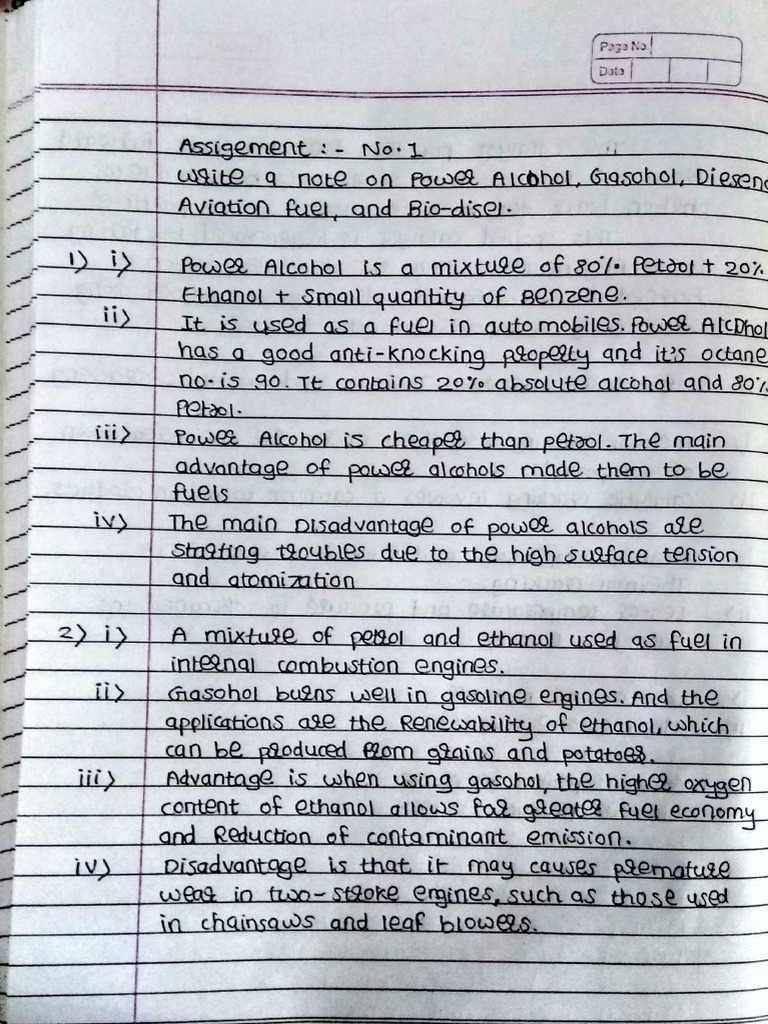 Page No.
Date
Assigement :- No.1
Write a note on Power Alcohol, Gasohol, Diesen
Aviation fuel, and Bio-disel.
1) i) Power Alcohol is a mixture of 80% Petrol + 20%
Ethanol + Small quantity of Benzene.
ii) It is used as a fuel in auto mobiles. Power Alcohol
has a good anti-knocking property and it's octane
no. is 90. It contains 20% absolute alcohol and 80%
Petrol.
iii) Power Alcohol is cheaper than petrol. The main
advantage of power alcohols made them to be
fuels
iv) The main Disadvantage of power alcohols are
Starting troubles due to the high surface tension
and atomization
2) i) A mixture of petrol and ethanol used as fuel in
internal combustion engines.
ii) Gasohol burns well in gasoline engines. And the
applications are the Renewability of ethanol, which
can be produced from grains and potatoes.
iii) Advantage is when using gasohol, the higher oxygen
content of ethanol allows for greater fuel economy
and Reduction of contaminant emission.
iv) Disadvantage is that it may causes premature
wear in two-stroke engines, such as those used
in chainsaws and leaf blowers.